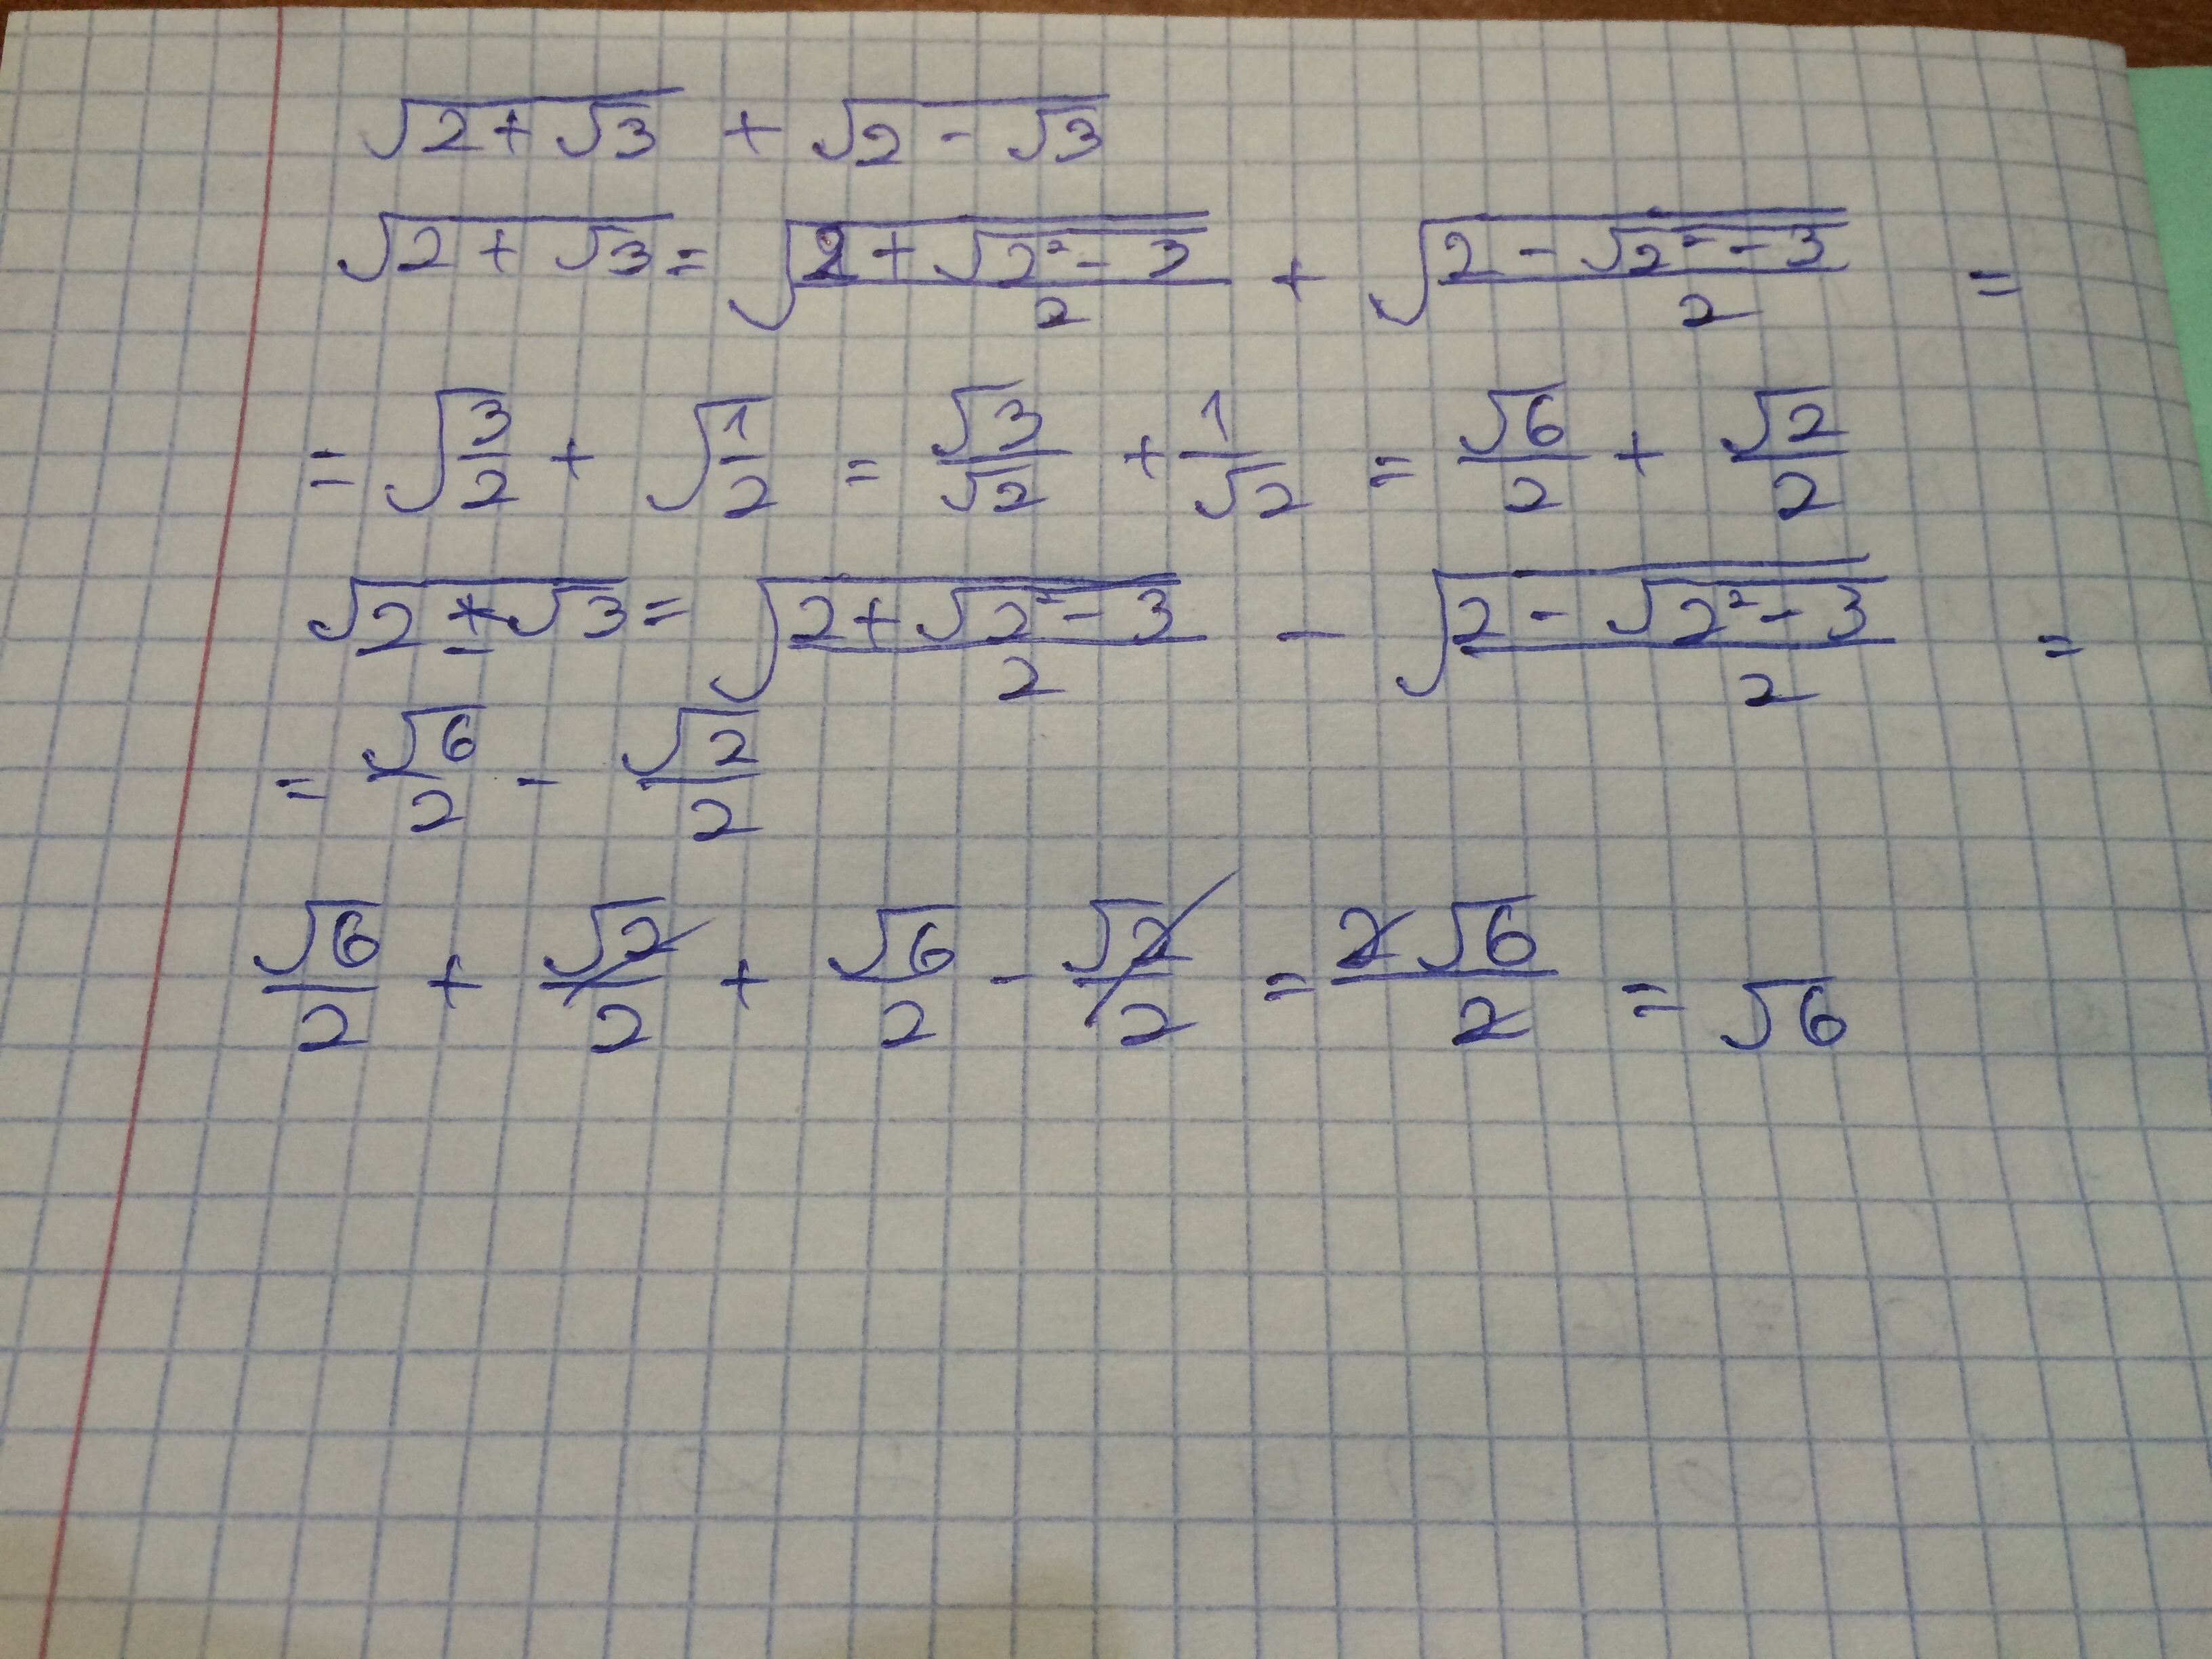 √(2+√3) + √(2-√3)
√(2+√3) = √((2+√(2²-3))/2) + √((2-√(2²-3))/2) =
= √(3/2) + √(1/2) = √3/√2 + 1/√2 = √6/2 + √2/2
√(2-√3) = √((2+√(2²-3))/2) - √((2-√(2²-3))/2) =
= √6/2 - √2/2
√6/2 + √2/2 + √6/2 - √2/2 = 2√6/2 = √6